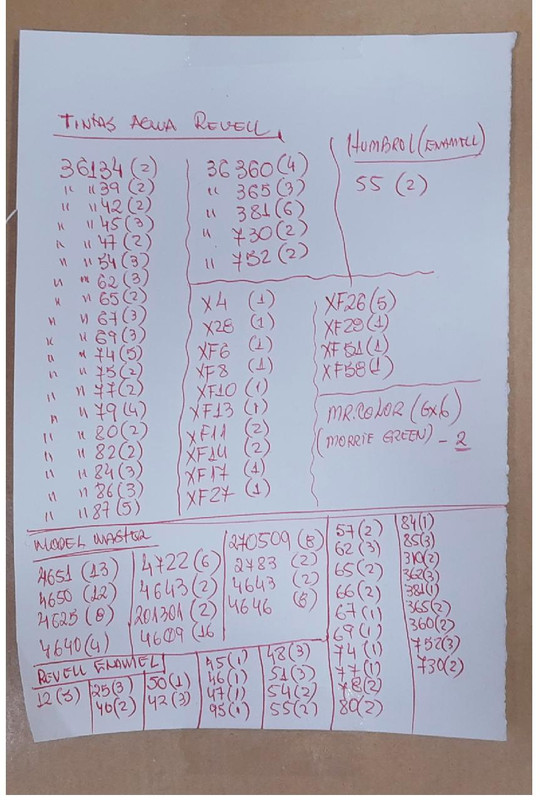 TINTAS AGUA REVELL
36134 (2)
" " 39 (2)
" " 42 (2)
" " 45 (3)
" " 47 (2)
" " 54 (3)
" " 62 (3)
" " 65 (2)
" " 67 (3)
" " 69 (3)
" " 74 (5)
" " 75 (2)
" " 77 (2)
" " 79 (4)
" " 80 (2)
" " 82 (2)
" " 84 (3)
" " 86 (3)
" " 87 (5)
36 360 (4)
" 365 (3)
" 381 (6)
" 730 (2)
" 752 (2)
HUMBROL (ENAMELL)
55 (2)
X4 (1)
X28 (1)
XF6 (1)
XF8 (1)
XF10 (1)
XF13 (1)
XF11 (2)
XF14 (2)
XF17 (1)
XF27 (1)
XF26 (5)
XF29 (1)
XF51 (1)
XF58 (1)
MR. COLOR (6x6)
(MORRIE GREEN) - 2
MODEL MASTER
4651 (13)
4650 (12)
4625 (8)
4640 (4)
4722 (6)
4643 (2)
201301 (2)
4609 (16
270509 (8)
2783 (2)
4643 (2)
4646 (8)
REVELL ENAMEL
12 (3)
25 (3)
46 (2)
50 (1)
42 (3)
45 (1)
46 (1)
47 (1)
95 (1)
48 (3)
51 (3)
54 (2)
55 (2)
57 (2)
62 (3)
65 (2)
66 (2)
67 (1)
69 (1)
74 (1)
77 (1)
78 (2)
80 (2)
84 (1)
85 (3)
310 (2)
362 (3)
381 (1)
365 (2)
360 (2)
752 (3)
730 (2)